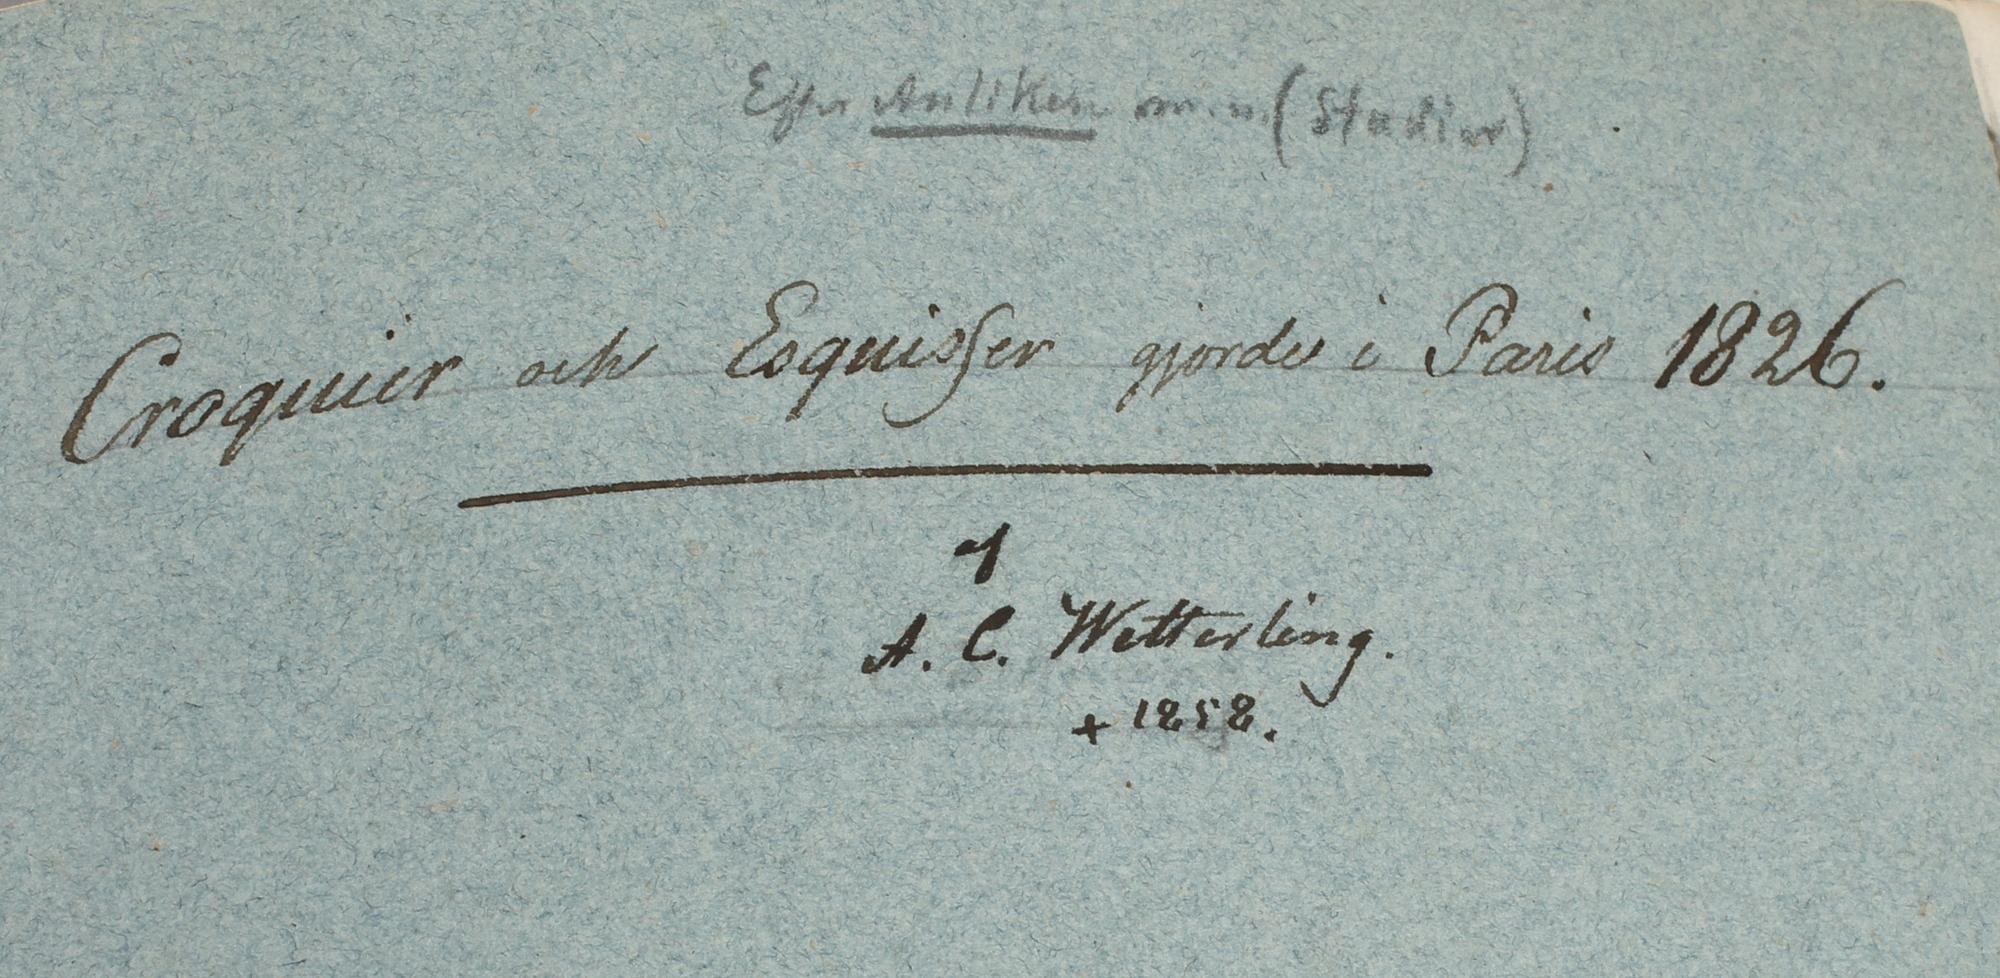 Efter Antiken m.m. (Studier)
Croquier och Esquisser gjorde i Paris 1826.
af
A. C. Wetterling.
+ 1858.